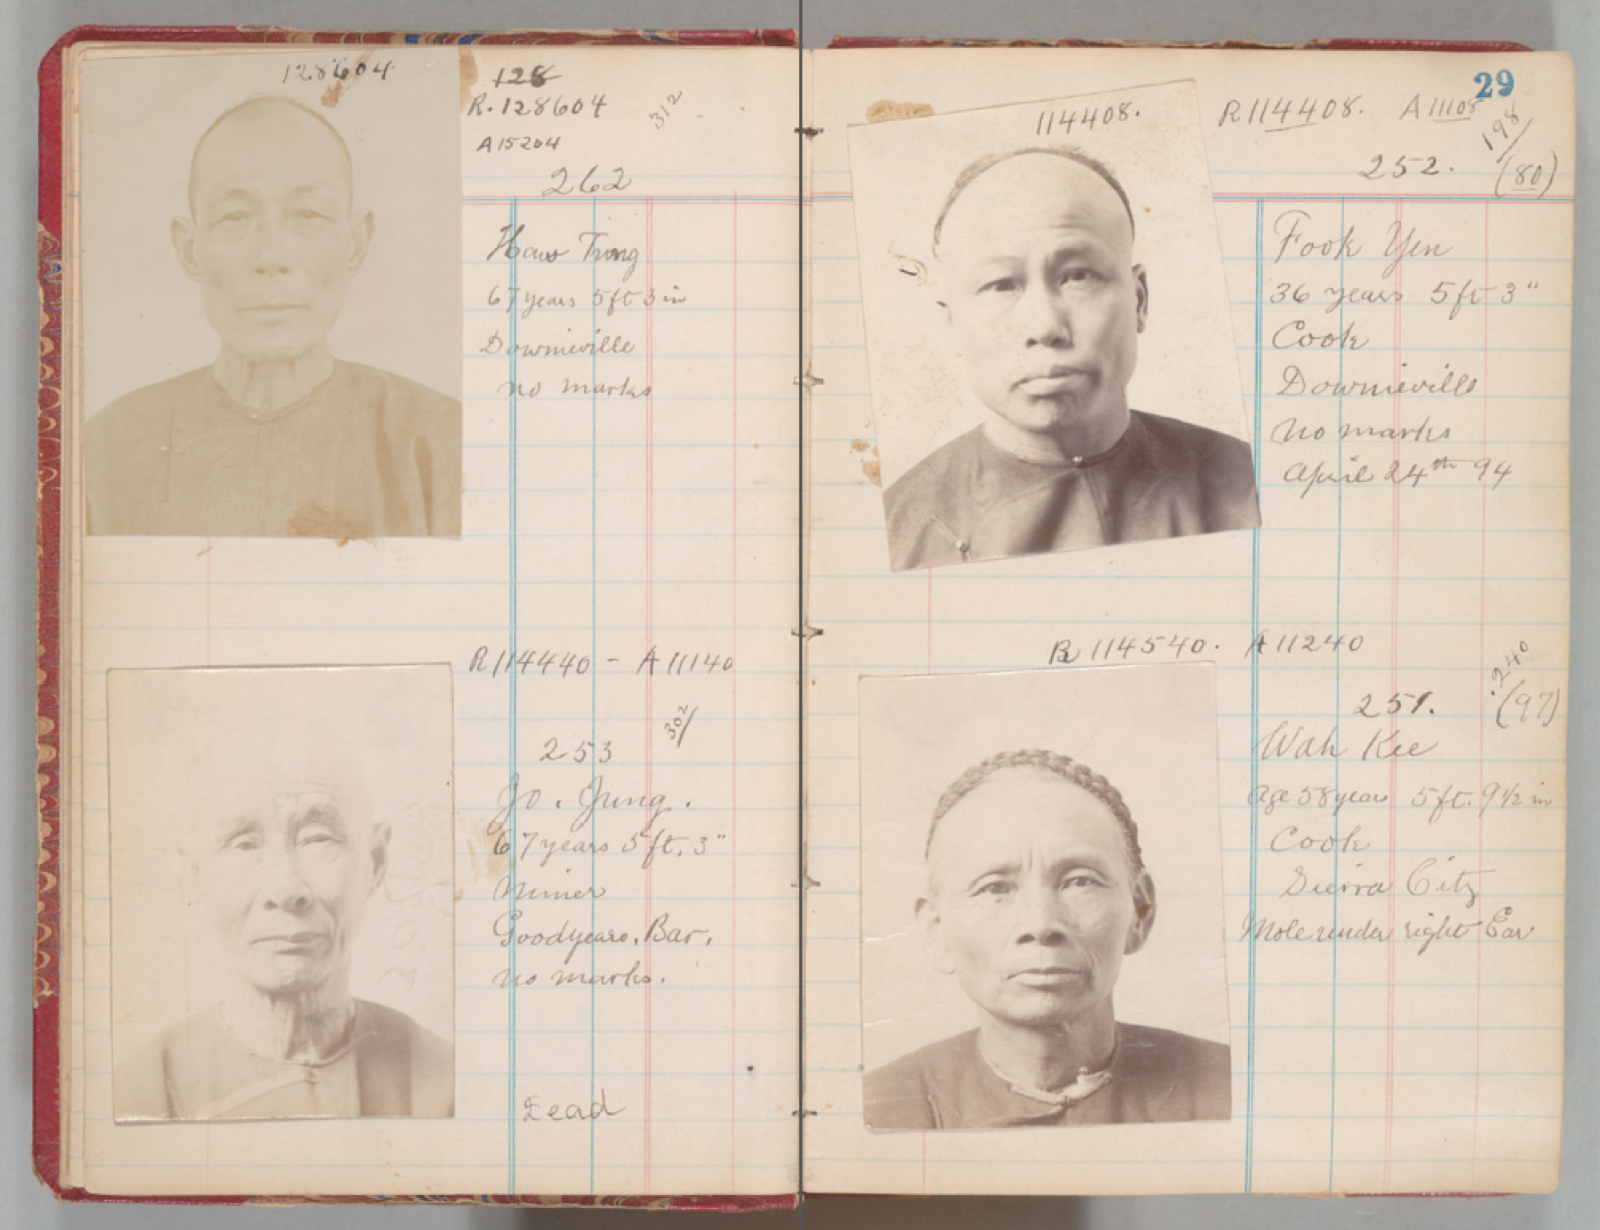 128604
128
R. 128604
312
A 15204
262
Haw Tung
67 years 5ft 3 in
Downieville
no marks
R 114440 - A 11140
302/
253
Jo. Jung.
67 years 5 ft. 3"
Miner
Goodyears. Bar.
no marks.
Dead
29
114408.
R 114408. A 11108
198/
252. (80)
Fook Yen
36 years 5 ft 3"
Cook
Downieville
No marks
April 24th 94
R 114540. A 11240
240
251. (97)
Wah Kee
Age 58 years 5 ft. 9 1/2 in
Cook
Sierra City
Mole under right Ear